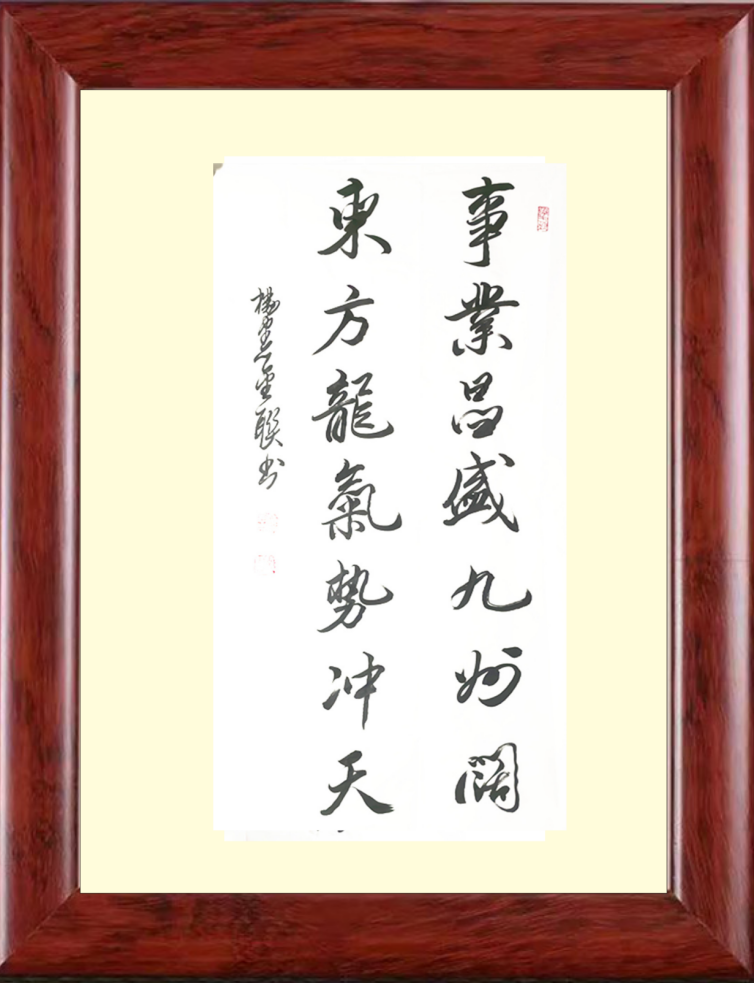 事業昌盛九州闊
東方龍氣勢冲天
楊 聯书